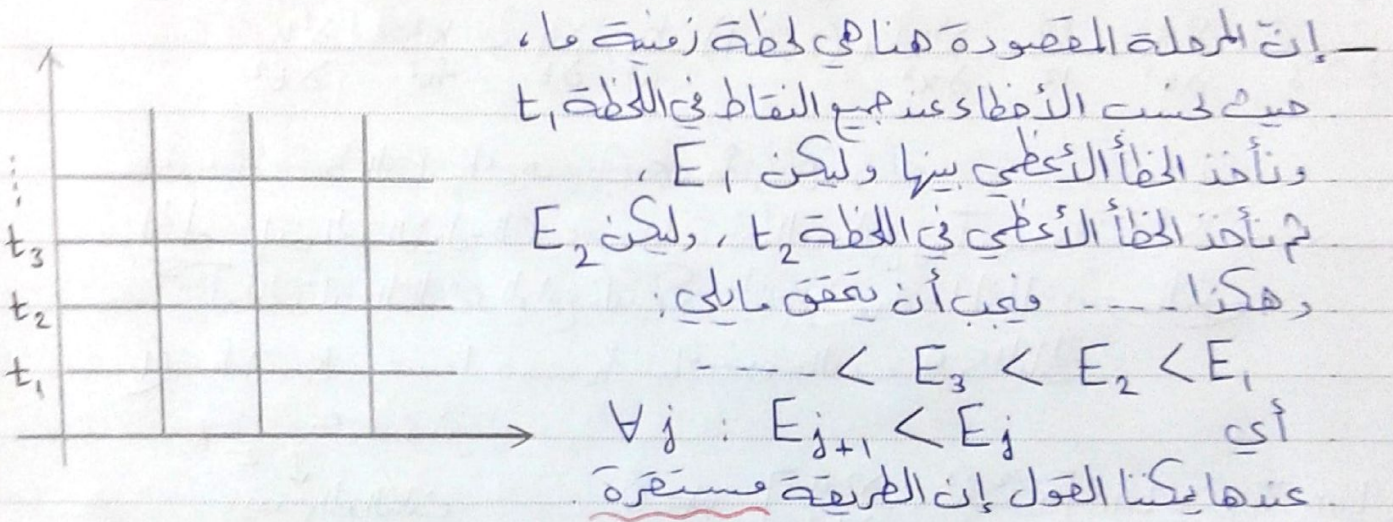 – إن المرحلة المقصودة هنا هي لحظة زمنية ما،
حيث نحسب الأخطاء عند جميع النقاط في اللحظة t₁
ونأخذ الخطأ الأعظمي بينها وليكن E₁،
ثم نأخذ الخطأ الأعظمي في اللحظة t₂، وليكن E₂
وهكذا .... فيجب أن يتحقق مايلي:
.... < E₃ < E₂ < E₁
أي ∀j : E_{j+1} < E_j
عندها يمكننا القول إن الطريقة مستقرة.
⋮
t₃
t₂
t₁